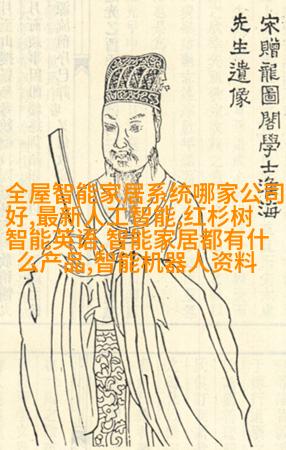 宋贈龍圖閣學士沧海
先生遺像
全屋智能家居系统哪家公司
好,最新人工智能,红杉树
智能英语,智能家居都有什
么产品,智能机器人资料